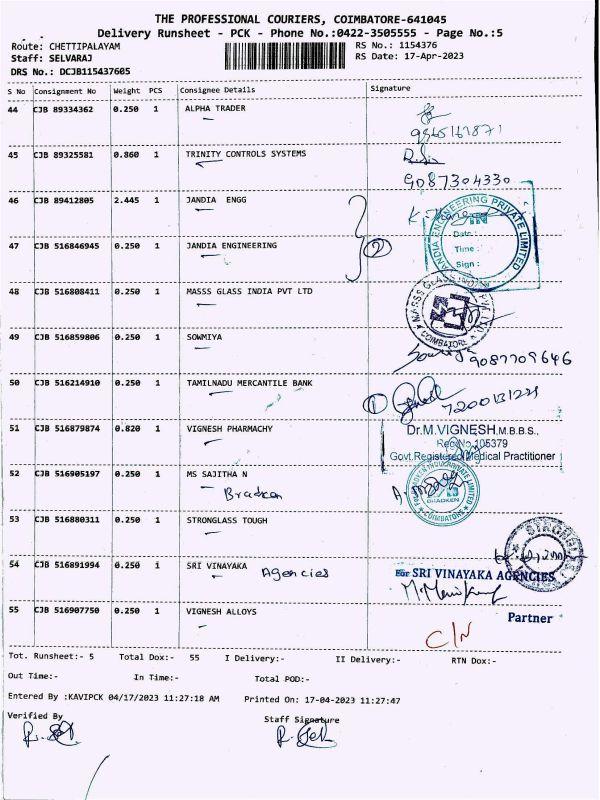 THE PROFESSIONAL COURIERS, COIMBATORE-641045
Delivery Runsheet - PCK - Phone No.:0422-3505555 - Page No.:5
Route: CHETTIPALAYAM RS No.: 1154376
Staff: SELVARAJ RS Date: 17-Apr-2023
DRS No.: DCJB115437605
S No Consignment No Weight PCS Consignee Details Signature
44 CJB 89334362 0.250 1 ALPHA TRADER
45 CJB 89325581 0.860 1 TRINITY CONTROLS SYSTEMS
9087304330
46 CJB 89412805 2.445 1 JANDIA ENGG
JANDIA ENGINEERING PRIVATE LIMITED
Date :
47 CJB 516846945 0.250 1 JANDIA ENGINEERING 2
Time :
Sign :
48 CJB 516808411 0.250 1 MASSS GLASS INDIA PVT LTD
MASSS GLASS INDIA PVT LTD
COIMBATORE
49 CJB 516859806 0.250 1 SOWMIYA
9087709646
50 CJB 516214910 0.250 1 TAMILNADU MERCANTILE BANK
1 7200131221
51 CJB 516879874 0.820 1 VIGNESH PHARMACHY
Dr.M.VIGNESH,M.B.B.S.,
Reg No 105379
Govt.Registered Medical Practitioner
52 CJB 516905197 0.250 1 MS SAJITHA N
Bradken
BRADKEN
COIMBATORE
53 CJB 516880311 0.250 1 STRONGLASS TOUGH
54 CJB 516891994 0.250 1 SRI VINAYAKA Agencies
For SRI VINAYAKA AGENCIES
55 CJB 516907750 0.250 1 VIGNESH ALLOYS
Partner
C/N
Tot. Runsheet:- 5 Total Dox:- 55 I Delivery:- II Delivery:- RTN Dox:-
Out Time:- In Time:- Total POD:-
Entered By :KAVIPCK 04/17/2023 11:27:18 AM Printed On: 17-04-2023 11:27:47
Verified By Staff Signature